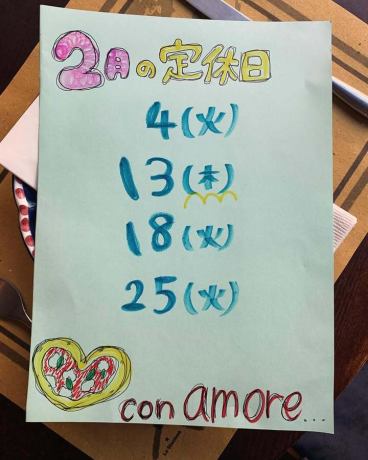 2月の定休日
4(火)
13(木)
18(火)
25(火)
con amore...